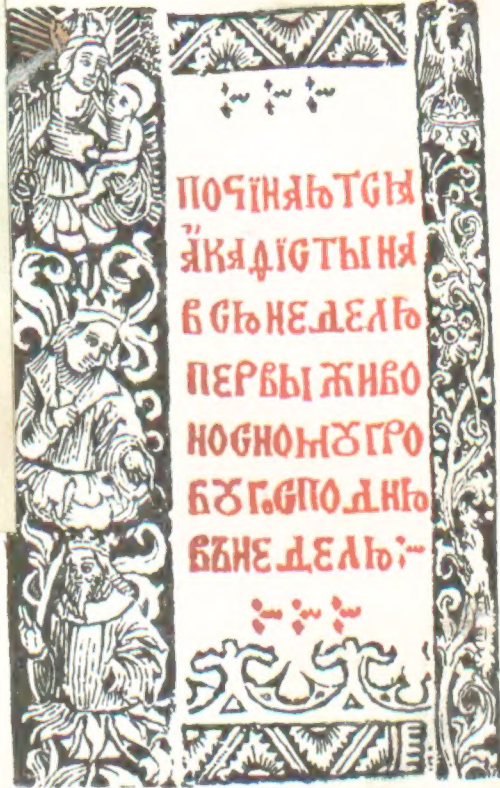 ПОЧЇНАЮТСѦ
А҆КАѲЇСТЫ НА
ВСЮ НЕДЕЛЮ
ПЕРВЫ ЖИВО
НОСНОМꙊ ГРО
БꙊ Г.СПОДНЮ
ВЪ НЕДЕЛЮ:~